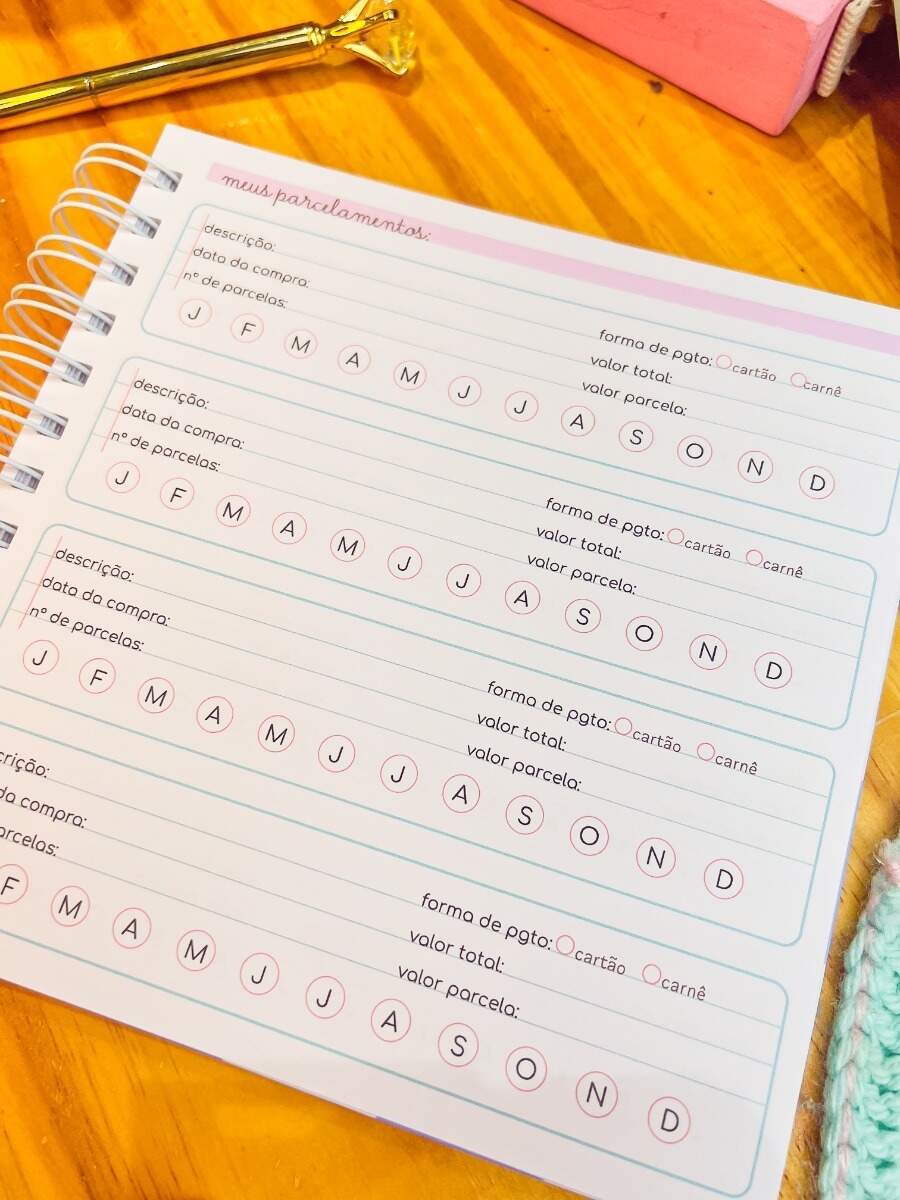 meus parcelamentos:
descrição:
data da compra: forma de pgto: cartão carnê
nº de parcelas: valor total:
valor parcela:
J F M A M J J A S O N D
descrição:
data da compra: forma de pgto: cartão carnê
nº de parcelas: valor total:
valor parcela:
J F M A M J J A S O N D
descrição:
data da compra: forma de pgto: cartão carnê
nº de parcelas: valor total:
valor parcela:
J F M A M J J A S O N D
crição:
da compra: forma de pgto: cartão carnê
arcelas: valor total:
valor parcela:
F M A M J J A S O N D